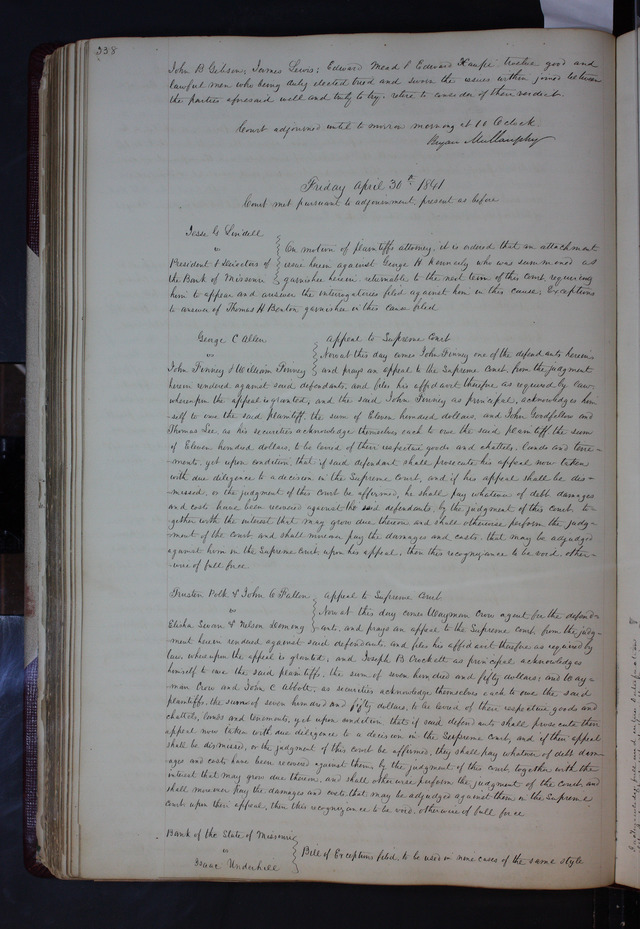 338
John B Gibson; James Lewis; Edward Mead & Edward Haupe twelve good and
lawful men who being duly elected tried and sworn the issues within joined between
the parties aforesaid well and truly to try. retire to consider of their verdict.
Court adjourned until to morrow morning at 10 O'clock.
Bryan Mullanphy
Friday April 30th 1841
Court met pursuant to adjournment, present as before
Jesse G Lindell
vs
On motion of plaintiffs attorney, it is ordered that an attachment
President & Directors of issue herein against George H Kennerly who was summoned as
the Bank of Missouri garnishee herein. returnable to the next term of this Court, requiring
him to appear and answer the interrogatories filed against him in this cause; Exceptions
to answer of Thomas H Benton garnishee in this cause filed
George C Allen Appeal to Supreme Court
vs Now at this day comes John Finney one of the defendants herein
John Finney & William Finney and prays an appeal to the Supreme Court, from the judgment
herein rendered against said defendants, and files his affidavit therefore as required by law.
whereupon the appeal is granted, and the said John Finney as principal, acknowledges him
self to owe the said plaintiff, the sum of Eleven hundred dollars, and John Goodfellow and
Thomas Lee as his securities acknowledge themselves each to owe the said plaintiff the sum
of Eleven hundred dollars, to be levied of their respective goods and chattels, lands and tene-
ments, yet upon condition, that if said defendant shall prosecute his appeal now taken
with due diligence to a decision in the Supreme Court, and if his appeal shall be dis-
missed, or the judgment of this Court be affirmed, he shall pay whatever of debt damages
and costs have been recovered against the said defendants, by the judgment of this court, to-
gether with the interest that may grow due thereon and shall otherwise perform the judg-
ment of the court and shall moreover pay the damages and costs, that may be adjudged
against him in the Supreme Court, upon his appeal, then this recognizance to be void, other-
-wise of full force
Trusten Polk & John C Fallen Appeal to Supreme Court
vs Now at this day comes Wayman Crow agent for the defend-
Elisha Swan & Nelson ants, and prays an appeal to the Supreme Court, from the judg-
ment herein rendered against said defendants, and files his affidavit therefore as required by
law. whereupon the appeal is granted, and Joseph B Crockett as principal acknowledges
himself to owe the said plaintiffs, the sum of seven hundred and fifty dollars; and Way-
man Crow and John C Abbott, as securities acknowledge themselves each to owe the said
plaintiffs. the sum of seven hundred and fifty dollars, to be levied of their respective goods and
chattels, lands and tenements, yet upon condition that if said defendants shall prosecute their
appeal now taken with due diligence to a decision in the Supreme Court, and if their appeal
shall be dismissed, or the judgment of this court be affirmed, they shall pay whatever of debt dam-
ages and costs have been recovered against them, by the judgment of this court, together with the
interest that may grow due thereon, and shall otherwise perform the judgment of the court, and
shall moreover pay the damages and costs, that may be adjudged against them in the Supreme
Court upon their appeal, then this recognizance to be void, otherwise of full force
Bank of the State of Missouri
vs Bill of Exceptions filed, to be used in nine cases of the same style
Isaac Underhill